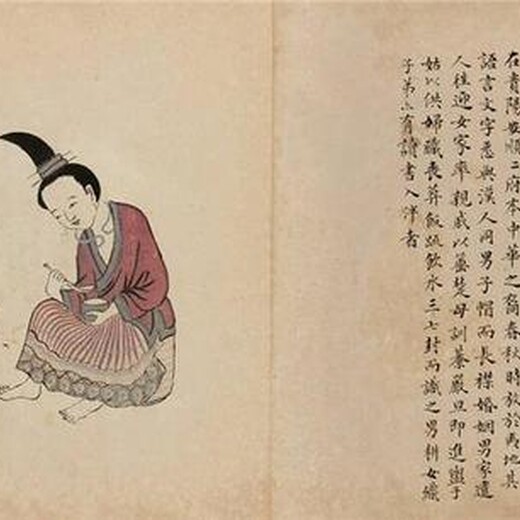 在貴陽安順二府本中華之裔春秋時放於南地其
語言文字悉與漢人同男子帽而長襟婚姻男家遣
人往迎女家率親戚以箠楚毋訓養嚴旦即進盥于
姑以供婦職喪葬飯蔬飲水三七封而識之男耕女織
子弟亦有讀書入泮者